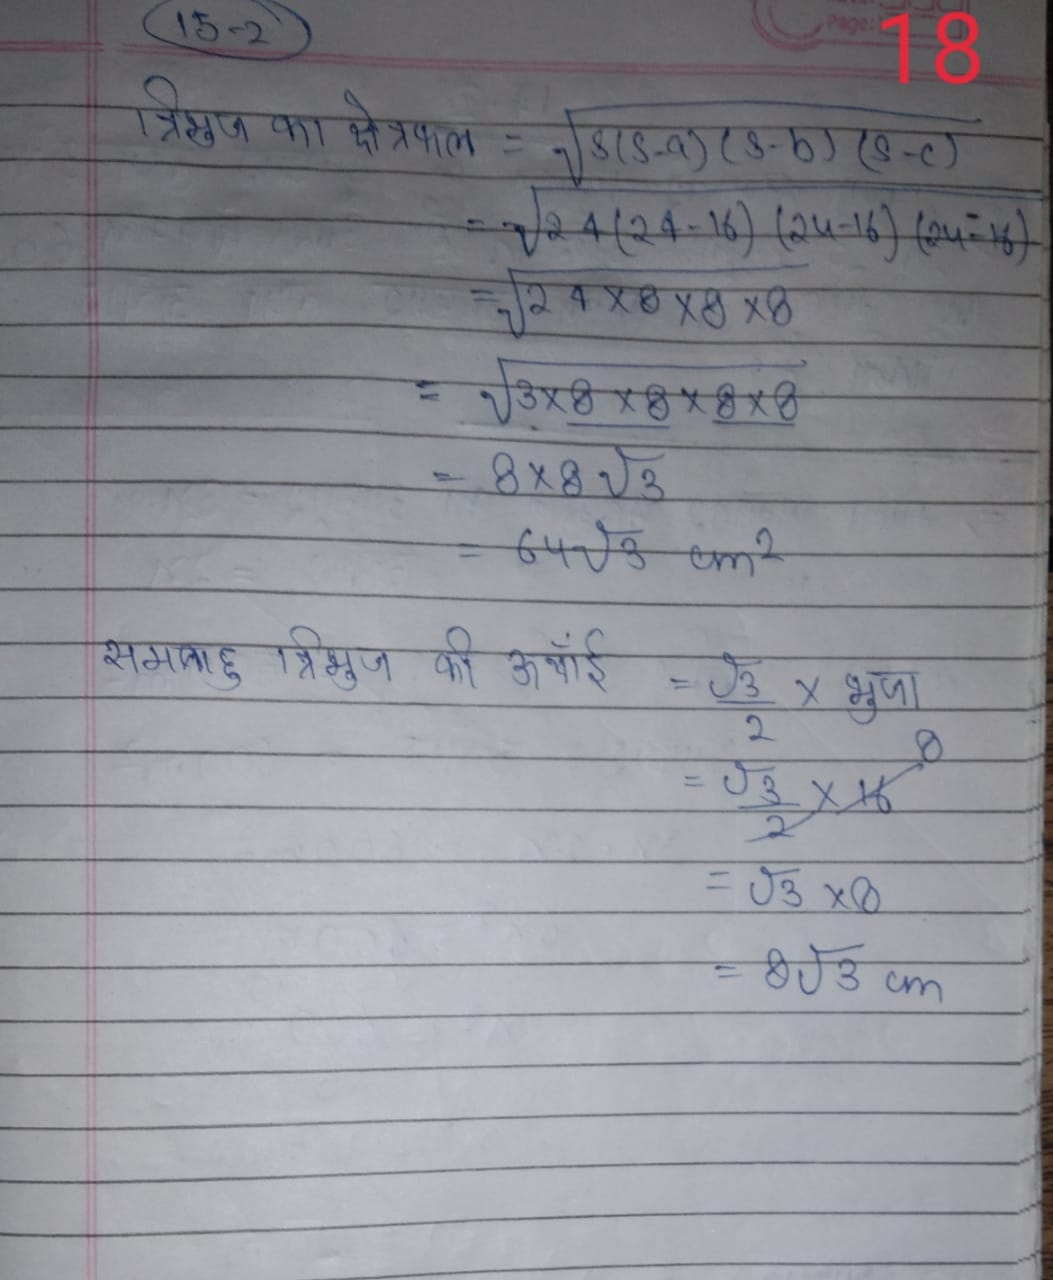 15-2
Page:
18
त्रिभुज का क्षेत्रफल = √s(s-a)(s-b)(s-c)
= √24(24-16)(24-16)(24-16)
= √24×8×8×8
= √3×8×8×8×8
= 8×8√3
= 64√3 cm²
समबाहु त्रिभुज की ऊचाँई = √3/2 × भुजा
= √3/2 × 16 8
= √3×8
= 8√3 cm